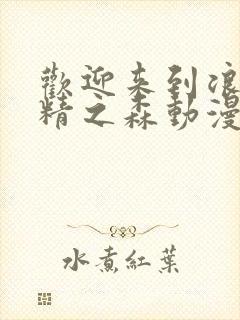 歡迎来到浪
精之森動漫
水煮紅葉